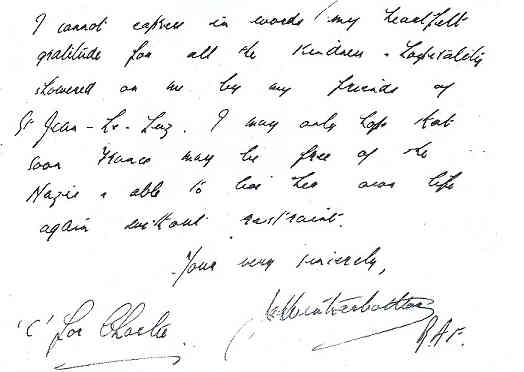 I cannot express in words my heartfelt
gratitude for all the kindness & hospitality
showered on me by my friends of
St Jean-de-Luz. I may only hope that
soon France may be free of the
Nazis & able to live her own life
again without restraint.
Yours very sincerely,
'C' for Charlie
R.A.F.